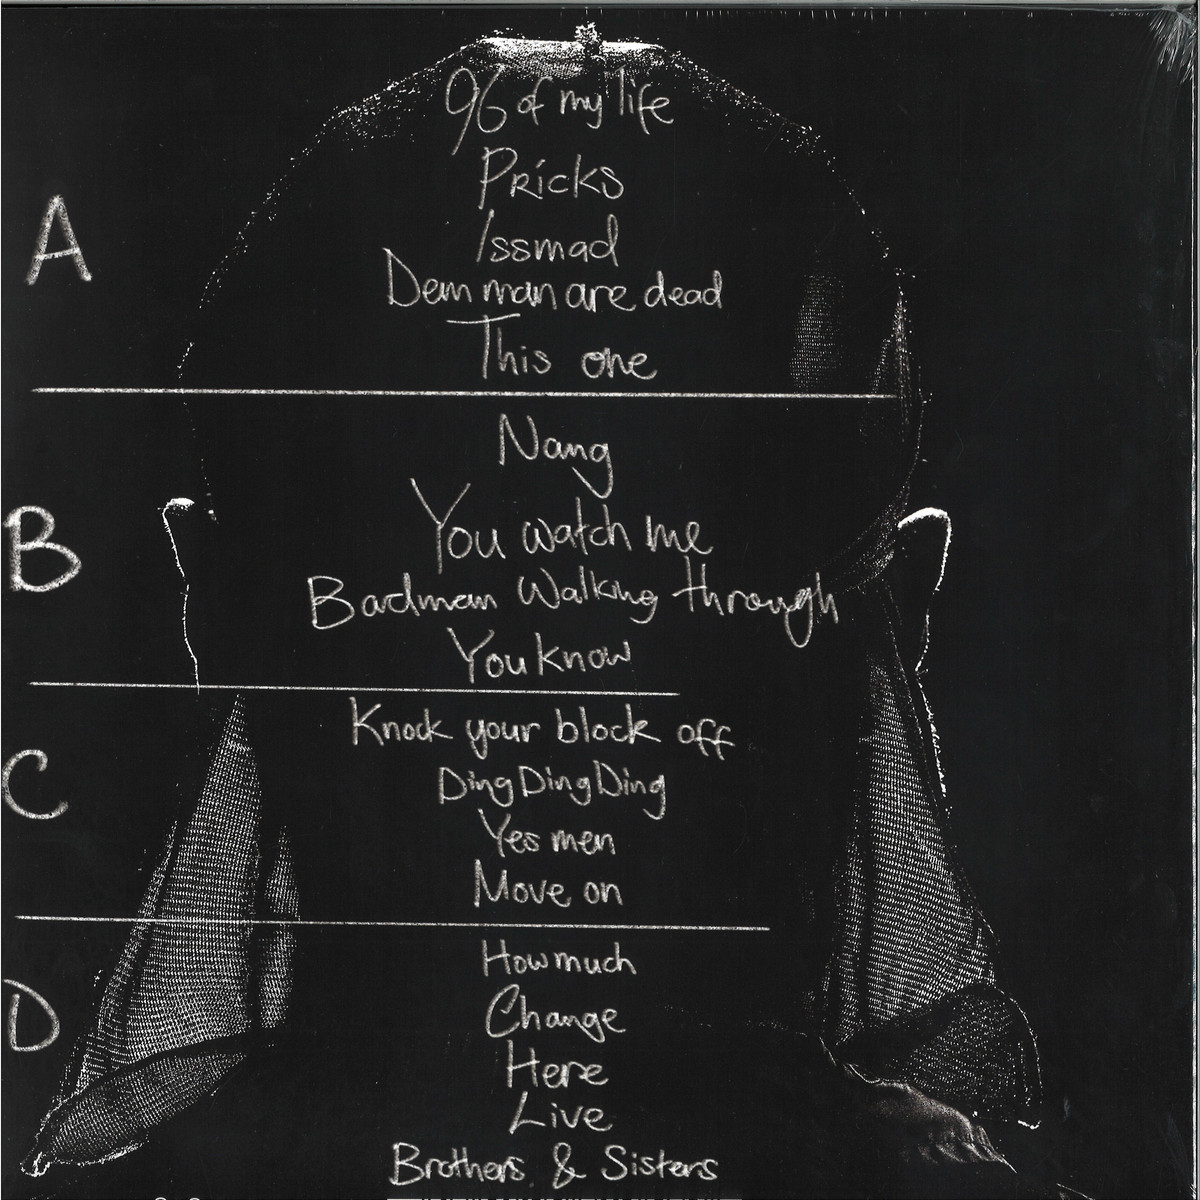 A
96 of my life
Pricks
Issmad
Dem man are dead
This one
B
Nang
You watch me
Badman Walking through
You know
C
Knock your block off
Ding Ding Ding
Yes men
Move on
D
How much
Change
Here
Live
Brothers & Sisters